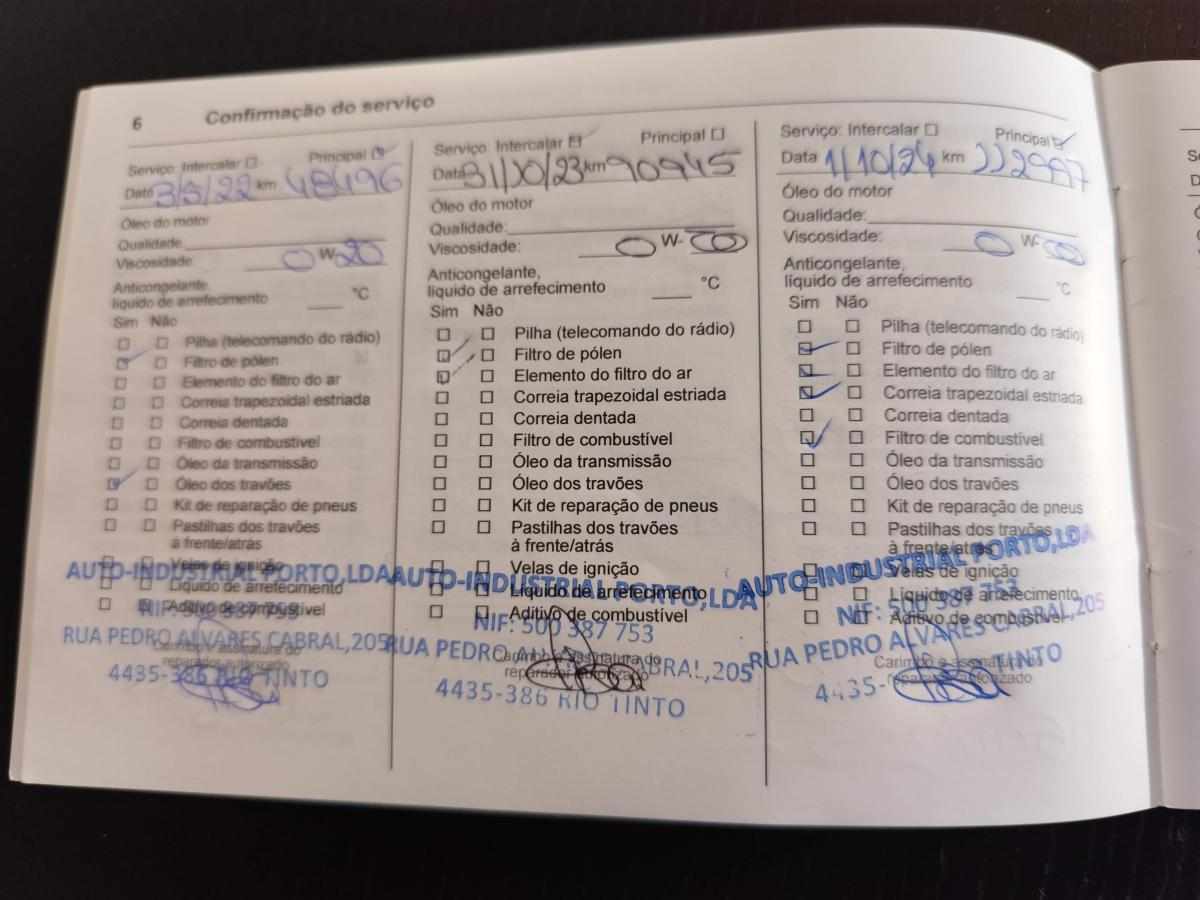 6 Confirmação do serviço
Serviço: Intercalar ☐ Principal ☑
Data 3/5/22 km 48496
Óleo do motor
Qualidade:
Viscosidade: 0 W-20
Anticongelante,
líquido de arrefecimento °C
Sim Não
☐ ☐ Pilha (telecomando do rádio)
☑ ☐ Filtro de pólen
☐ ☐ Elemento do filtro do ar
☐ ☐ Correia trapezoidal estriada
☐ ☐ Correia dentada
☐ ☐ Filtro de combustível
☐ ☐ Óleo da transmissão
☑ ☐ Óleo dos travões
☐ ☐ Kit de reparação de pneus
☐ ☐ Pastilhas dos travões
à frente/atrás
☐ ☐ Velas de ignição
☐ ☐ Líquido de arrefecimento
☐ ☐ Aditivo de combustível
Carimbo e assinatura do
reparador autorizado
AUTO-INDUSTRIAL PORTO,LDA
NIF: 500 387 753
RUA PEDRO ALVARES CABRAL,205
4435-386 RIO TINTO
Serviço: Intercalar ☑ Principal ☐
Data 31/10/23 km 90945
Óleo do motor
Qualidade:
Viscosidade: 0 W-
Anticongelante,
líquido de arrefecimento °C
Sim Não
☐ ☐ Pilha (telecomando do rádio)
☑ ☐ Filtro de pólen
☑ ☐ Elemento do filtro do ar
☐ ☐ Correia trapezoidal estriada
☐ ☐ Correia dentada
☐ ☐ Filtro de combustível
☐ ☐ Óleo da transmissão
☐ ☐ Óleo dos travões
☐ ☐ Kit de reparação de pneus
☐ ☐ Pastilhas dos travões
à frente/atrás
☐ ☐ Velas de ignição
☐ ☐ Líquido de arrefecimento
☐ ☐ Aditivo de combustível
Carimbo e assinatura do
reparador autorizado
AUTO-INDUSTRIAL PORTO,LDA
NIF: 500 387 753
RUA PEDRO ALVARES CABRAL,205
4435-386 RIO TINTO
Serviço: Intercalar ☐ Principal ☑
Data 1/10/24 km
Óleo do motor
Qualidade:
Viscosidade: 0 W-
Anticongelante,
líquido de arrefecimento °C
Sim Não
☐ ☐ Pilha (telecomando do rádio)
☑ ☐ Filtro de pólen
☑ ☐ Elemento do filtro do ar
☑ ☐ Correia trapezoidal estriada
☐ ☐ Correia dentada
☑ ☐ Filtro de combustível
☐ ☐ Óleo da transmissão
☐ ☐ Óleo dos travões
☐ ☐ Kit de reparação de pneus
☐ ☐ Pastilhas dos travões
à frente/atrás
☐ ☐ Velas de ignição
☐ ☐ Líquido de arrefecimento
☐ ☐ Aditivo de combustível
Carimbo e assinatura do
reparador autorizado
AUTO-INDUSTRIAL PORTO,LDA
NIF: 500 387 753
RUA PEDRO ALVARES CABRAL,205
4435- TINTO